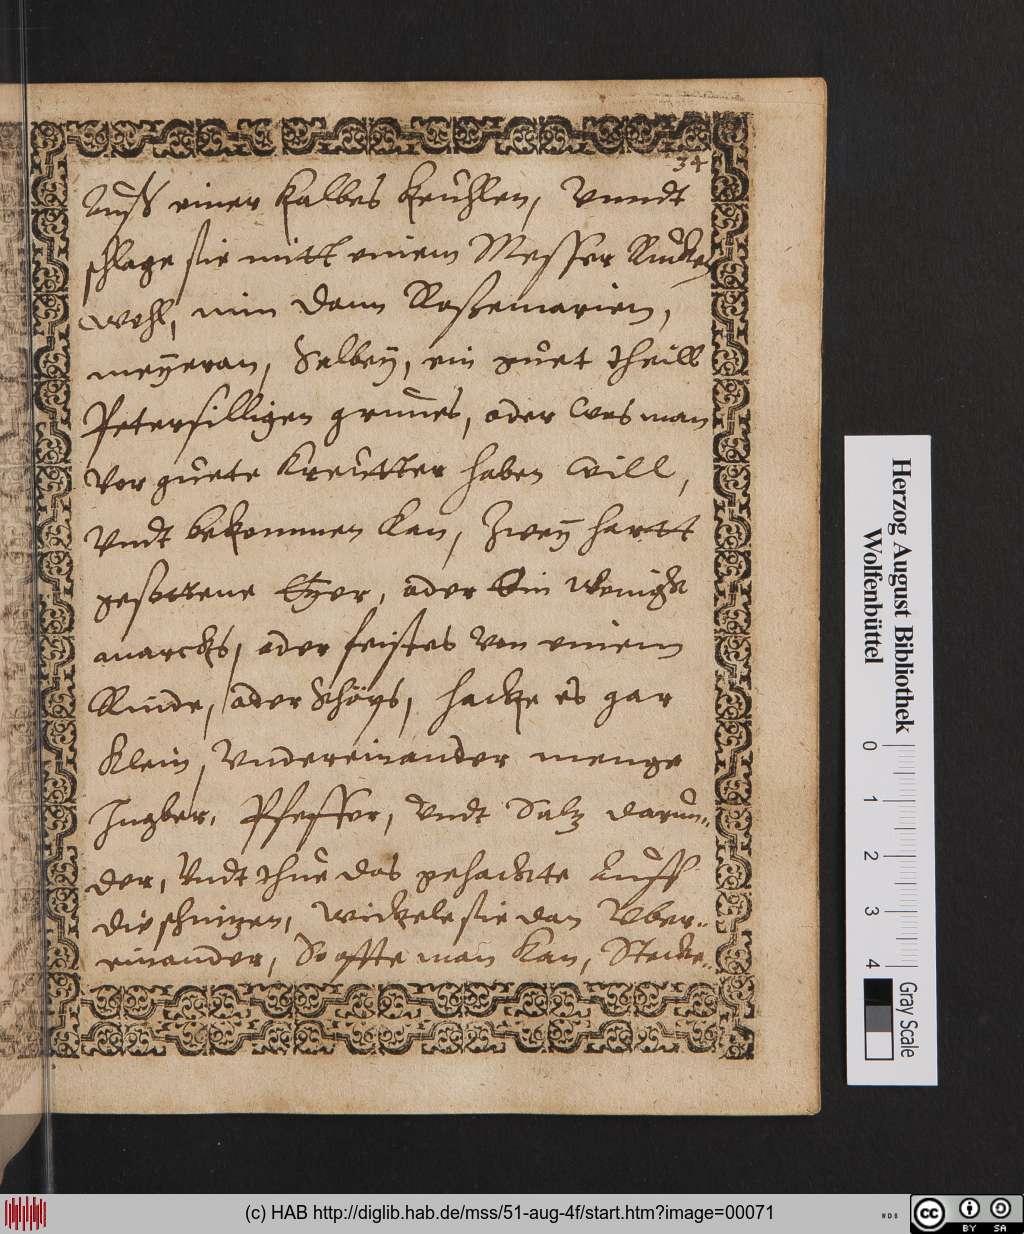 34
Auß einer Kalbes Keühlen, Vnndt
schlage sie mitt einem Messer Rucken
wohl, nim dann Roßemarien,
meÿeran, Salbeÿ, ein guet theill
Petersilligen grunes, oder was man
vor guete Kreutter haben will,
Vndt bekommen kan, Zweÿ hartt
gesottene Eÿer, oder Ein Wenigk
marcks, oder feistes von einem
Rinde, oder Schöps, hacke es gar
Klein, Vndereinander menge
Ingber, Pfeffer, Vndt Saltz darun-
der, Vndt thue das gehackte Auff
die schnitzen, Wickele sie dan Vber-
einander, So offte man Kan, Stecke-
Herzog August Bibliothek
Wolfenbüttel
0 1 2 3 4
Gray Scale
(c) HAB http://diglib.hab.de/mss/51-aug-4f/start.htm?image=00071
WDB
cc BY SA